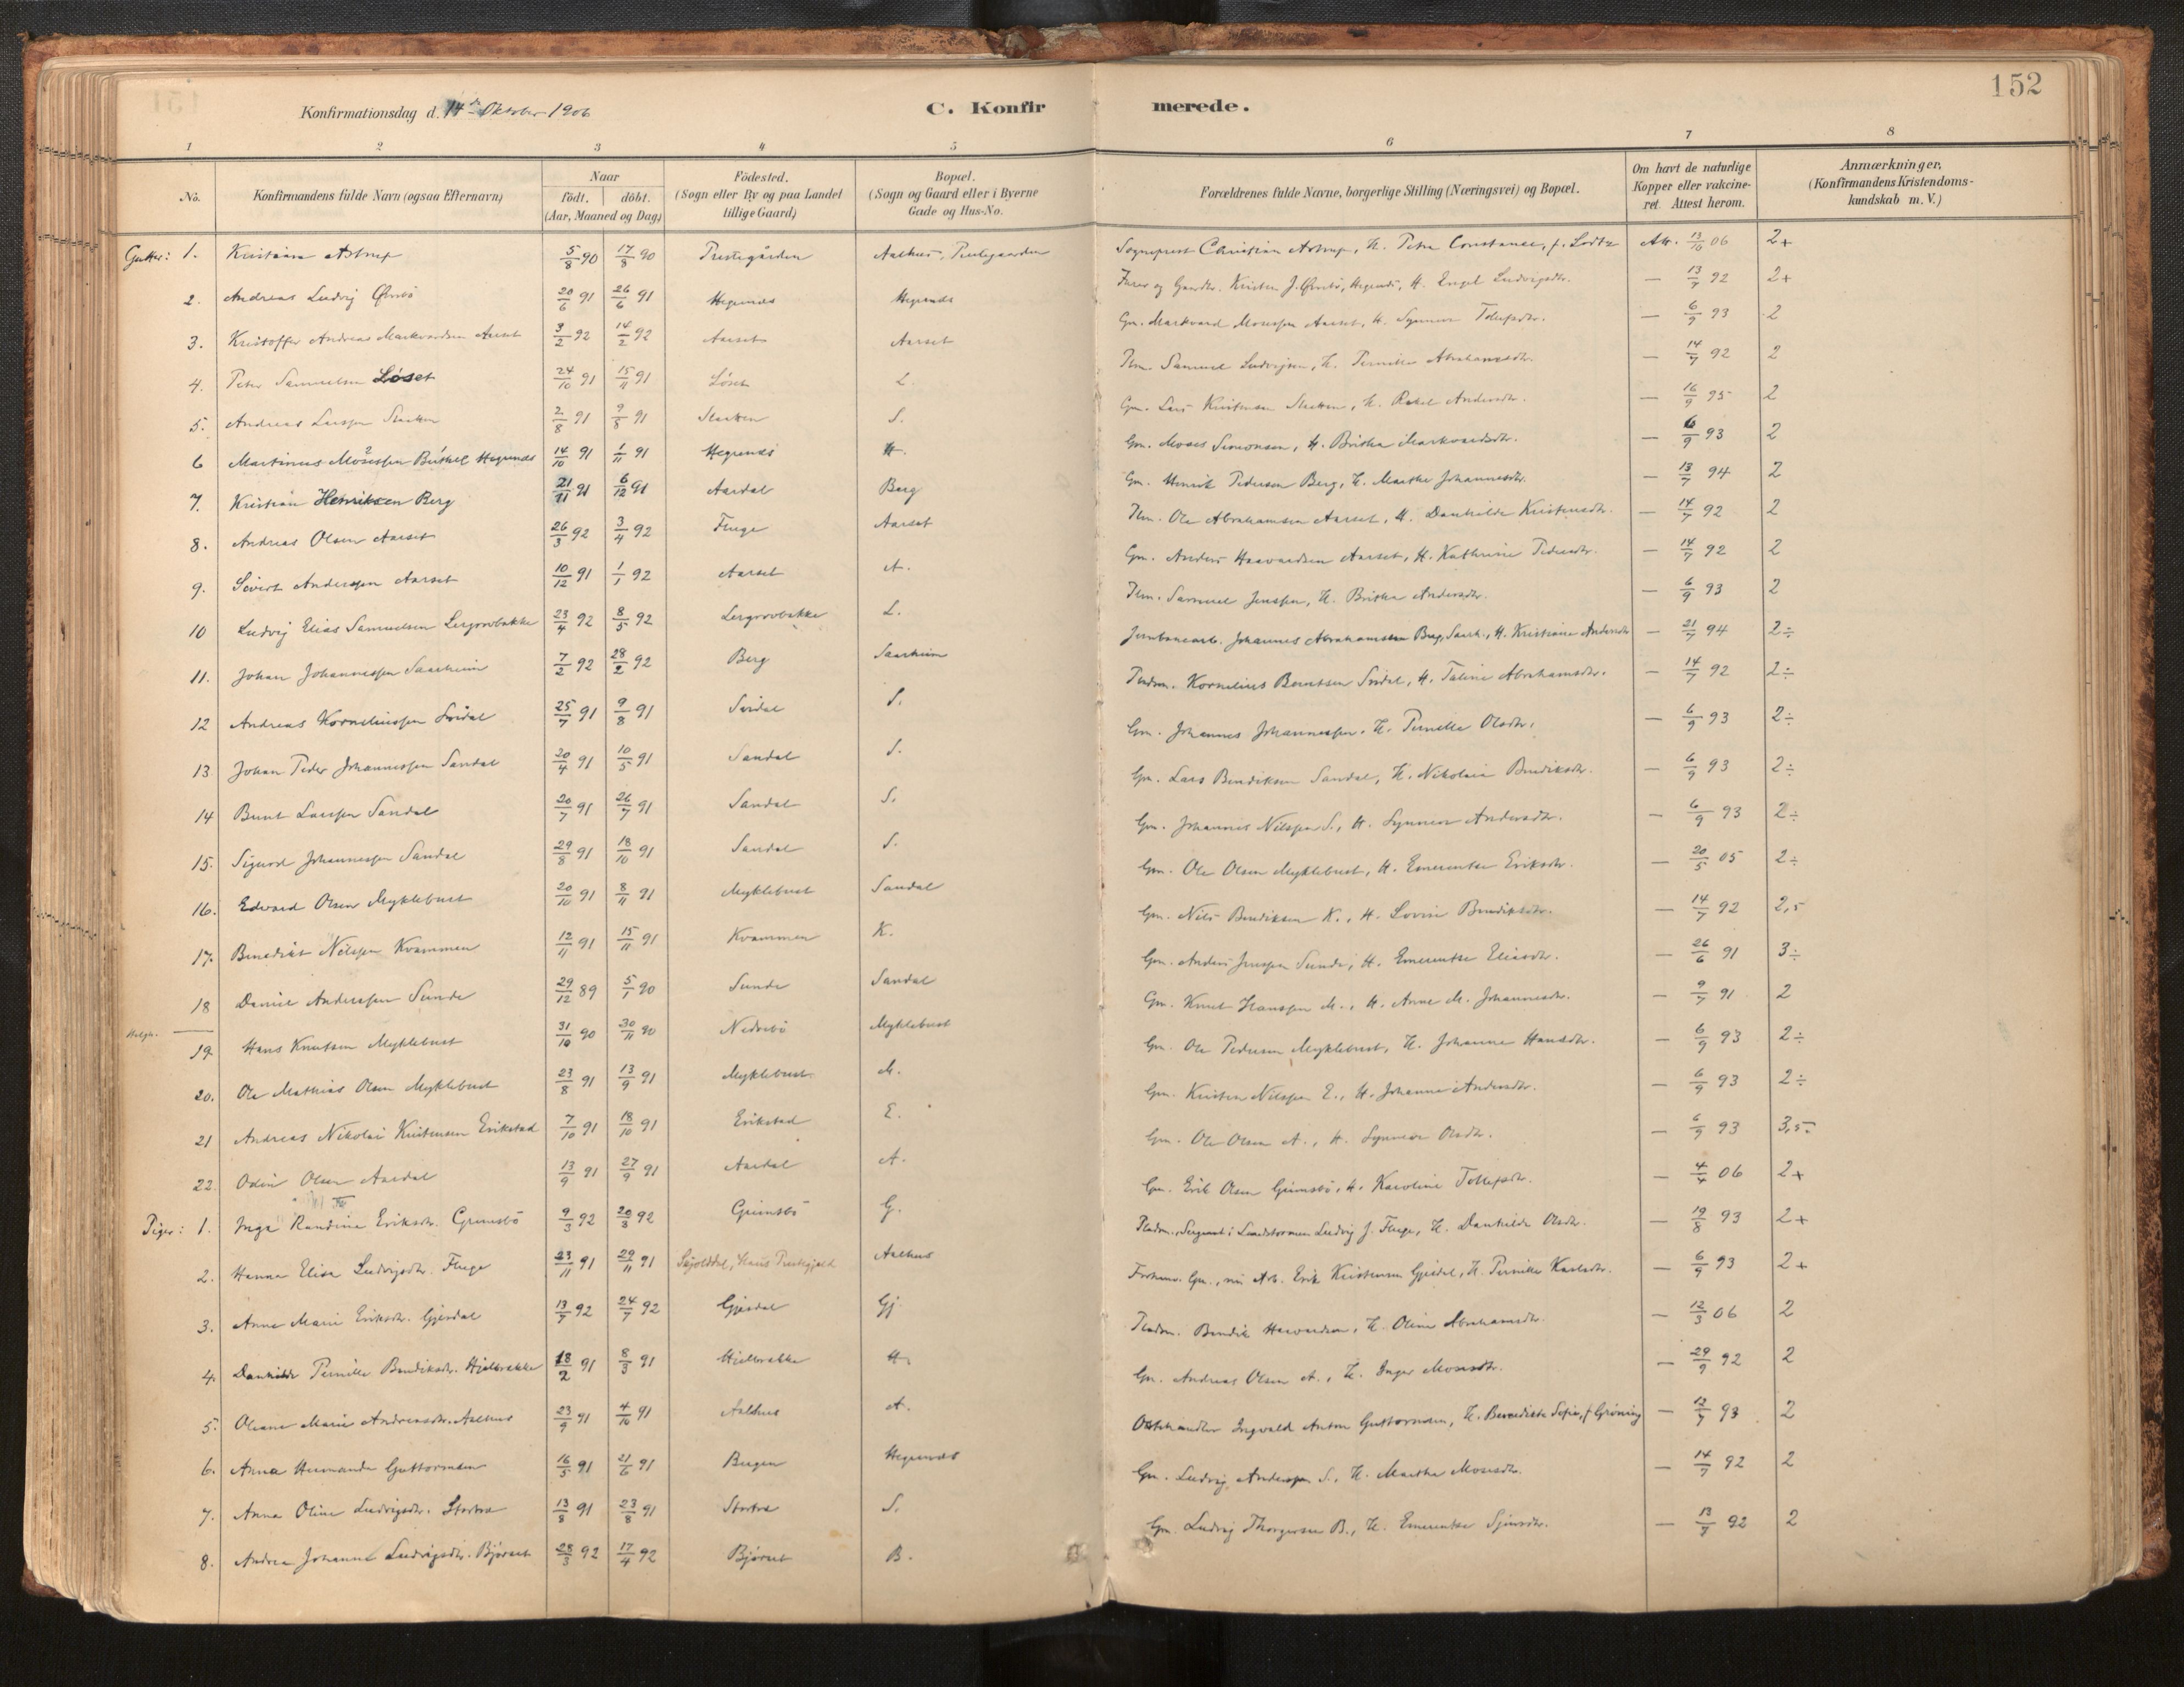 152
Konfirmationsdag d. 14de Oktober 1906
C. Konfirmerede.
1 2 3 4 5 6 7 8
No. Konfirmandens fulde Navn (ogsaa Efternavn) Naar født. døbt. (Aar, Maaned og Dag) Fødested. (Sogn eller By og paa Landet tillige Gaard) Bopæl. (Sogn og Gaard eller i Byerne Gade og Hus-No. Forældrenes fulde Navne, borgerlige Stilling (Næringsvei) og Bopæl. Om havt de naturlige Kopper eller vakcineret. Attest herom. Anmærkninger, (Konfirmandens Kristendomskundskab m. V.)
Gutter: 1. Kristian Astrup 5/8 90 17/8 90 Prestegården Aalhus, Prestegaarden Sogneprest Christian Astrup, H. Petra Constance, f. Att. 13/10 06 2+
2. Andreas Ludvig 20/6 91 26/6 91 Hegrenes Hegrenes H. Engel Ludvigsdtr. — 13/7 92 2+
3. Kristoffer Andreas Markvardsen Aarset 3/2 92 14/2 92 Aarset Aarset Gm. Markvard Mosessen Aarset, H. Synneve Tollefsdtr. — 6/9 93 2
4. Peter Samuelsen Løset 24/10 91 15/11 91 Løset L. Samuel Ludvigsen, H. Pernille Abrahamsdtr. — 14/7 92 2
5. Andreas Larssen Slatten 2/8 91 9/8 91 Slatten S. Gm. Lars Kristensen Slatten, H. Rakel Andersdtr. — 16/9 95 2
6 Martinus Mosessen Hegrenes 14/10 91 1/11 91 Hegrenes H. Gm. Moses Simonsen, H. Britha Markvardsdtr. — 6/9 93 2
7. Kristian Henriksen Berg 21/11 91 6/12 91 Aardal Berg Gm. Henrik Pedersen Berg, H. Marthe Johannesdtr. — 13/7 94 2
8. Andreas Olsen Aarset 26/3 92 3/4 92 Fluge Aarset Ole Abrahamsen Aarset, H. Danhilde Kristensdtr. — 14/7 92 2
9. Sivert Anderssen Aarset 10/12 91 1/1 92 Aarset A. Gm. Anders Haavardsen Aarset, H. Kathrine Pedersdtr. — 14/7 92 2
10 Ludvig Elias Samuelsen Lergrovbakke 23/4 92 8/5 92 Lergrovbakke L. Samuel Jenssen, H. Britha Andersdtr. — 6/9 93 2
11. Johan Johannessen Saarheim 7/2 92 28/2 92 Berg Saarheim Jernbanearb. Johannes Abrahamsen Berg, Saarh., H. Kristiane Andersdtr — 21/7 94 2÷
12 Andreas Korneliussen Sridal 25/7 91 9/8 91 Sridal S. Pladsm. Kornelius Berntsen Sridal, H. Taline Abrahamsdtr. — 14/7 92 2÷
13. Johan Peder Johannessen Sandal 20/4 91 10/5 91 Sandal S. Gm. Johannes Johannessen. H. Pernille Olsdtr. — 6/9 93 2÷
14 Bernt Larssen Sandal 20/7 91 26/7 91 Sandal S. Gm. Lars Bendiksen Sandal, H. Nikolaia Bendiksdtr. — 6/9 93 2÷
15. Sigurd Johannessen Sandal 29/8 91 18/10 91 Sandal S. Gm. Johannes Nilssen S., H. Synneve Andersdtr. — 6/9 93 2÷
16. Edvard Olsen Myklebust 20/10 91 8/11 91 Myklebust Sandal Gm. Ole Olsen Myklebust, H. Emerentse Eriksdtr. — 20/5 05 2÷
17. Benedikt Nilssen Kvammen 12/11 91 15/11 91 Kvammen K. Gm. Nils Bendiksen K., H. Lovise Bendiksdtr. — 14/7 92 2,5
18 Daniel Anderssen Sunde 29/12 89 5/1 90 Sunde Sandal Gm. Anders Jenssen Sunde, H. Emerentse Eliasdtr. — 26/6 91 3÷
19. Hans Knutsen Myklebust 31/10 90 30/11 90 Nedrebø Myklebust Gm. Knut Hanssen M., H. Anne M. Johannesdtr. — 9/7 91 2
20. Ole Mathias Olsen Myklebust 23/8 91 13/9 91 Myklebust M. Gm. Ole Pedersen Myklebust, H. Johanne Hansdtr. — 6/9 93 2÷
21 Andreas Nikolai Kristensen Erikstad 7/10 91 18/10 91 Erikstad E. Gm. Kristen Nilssen E., H. Johanne Andersdtr. — 6/9 93 2÷
22. Odin Olsen Aardal 13/9 91 27/9 91 Aardal A. Gm. Ole Olsen A., H. Synneve Olsdtr. — 6/9 93 3,5
Piger: 1. Inga Randina Eriksdtr. Grimsbø 9/3 92 20/3 92 Grimsbø G. Gm. Erik Olsen Grimsbø, H. Karoline Tollefsdtr. — 4/4 06 2+
2. Hanna Elisa Ludvigsdtr. Fluge 23/11 91 29/11 91 Skjolddal, Haus Prestegjeld Aalhus Pladsm., Sergeant i Landstormen Ludvig J. Fluge, H. Danhilde Olsdtr. — 19/8 93 2+
3. Anne Marie Eriksdtr. Gjesdal 13/7 92 24/7 92 Gjesdal Gj. Gm., nu Arb. Erik Kristensen Gjesdal, H. Pernille Karlsdtr. — 6/9 93 2+
4. Danhilde Pernille Bendiksdtr. Hjelbrekke 18/2 91 8/3 91 Hjelbrekke H. Pladsm. Bendik Havardsen, H. Oline Abrahamsdtr. — 12/3 06 2
5. Oleane Marie Andreasdtr. Aalhus 23/9 91 4/10 91 Aalhus A. Gm. Andreas Olsen A., H. Inger Mosesdtr. — 29/9 92 2
6. Anna Hermanda Guttormsen 16/5 91 21/6 91 Bergen Hegrenes Ostehandler Ingvald Anton Guttormsen, H. Benedikte Sofie, f. Grøning — 12/7 93 2
7. Anna Oline Ludvigsdtr. Stortræ 13/8 91 23/8 91 Stortræ S. Gm. Ludvig Anderssen S., H. Marthe Mosesdtr. — 14/7 92 2
8. Andrea Johanne Ludvigsdtr. Bjørset 28/3 92 17/4 92 Bjørset B. Gm. Ludvig Thorgersen B., H. Emerentse — 13/7 92 2